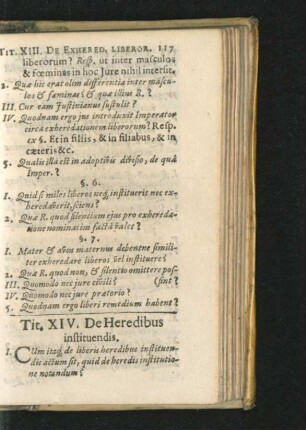 TIT. XIII. DE EXHERED. LIBEROR. 117
liberorum? Resp. ut inter masculos
& fœminas in hoc Jure nihil intersit.
2. Quæ hîc erat olim differentia inter mascu-
los & fæminas? & quæ illius R.?
III. Cur eam Justinianus sustulit?
IV. Quodnam ergo jus introduxit Imperator
circa exheredationem liberorum? Resp.
ex §. Et in filiis, & in filiabus, & in
cæteris &c.
5. Qualis illa est in adoptivis divisio, de quâ
Imper.?
§. 6.
1. Quid si miles liberos neq; instituerit nec ex-
heredaverit, sciens?
2. Quæ R. quod silentium ejus pro exhereda-
tione nominatim factâ valet?
§. 7.
1. Mater & avus maternus debentne simili-
ter exheredare liberos vel instituere?
2. Quæ R. quod non, & silentio omittere pos-
III. Quomodo nec jure civili? (sint?
IV. Quomodo nec jure prætorio?
5. Quodnam ergo liberi remedium habent?
Tit. XIV. De Heredibus
instituendis.
1. CUm itaq; de liberis heredibus instituen-
dis actum sit, quid de heredis institutio-
ne notandum?